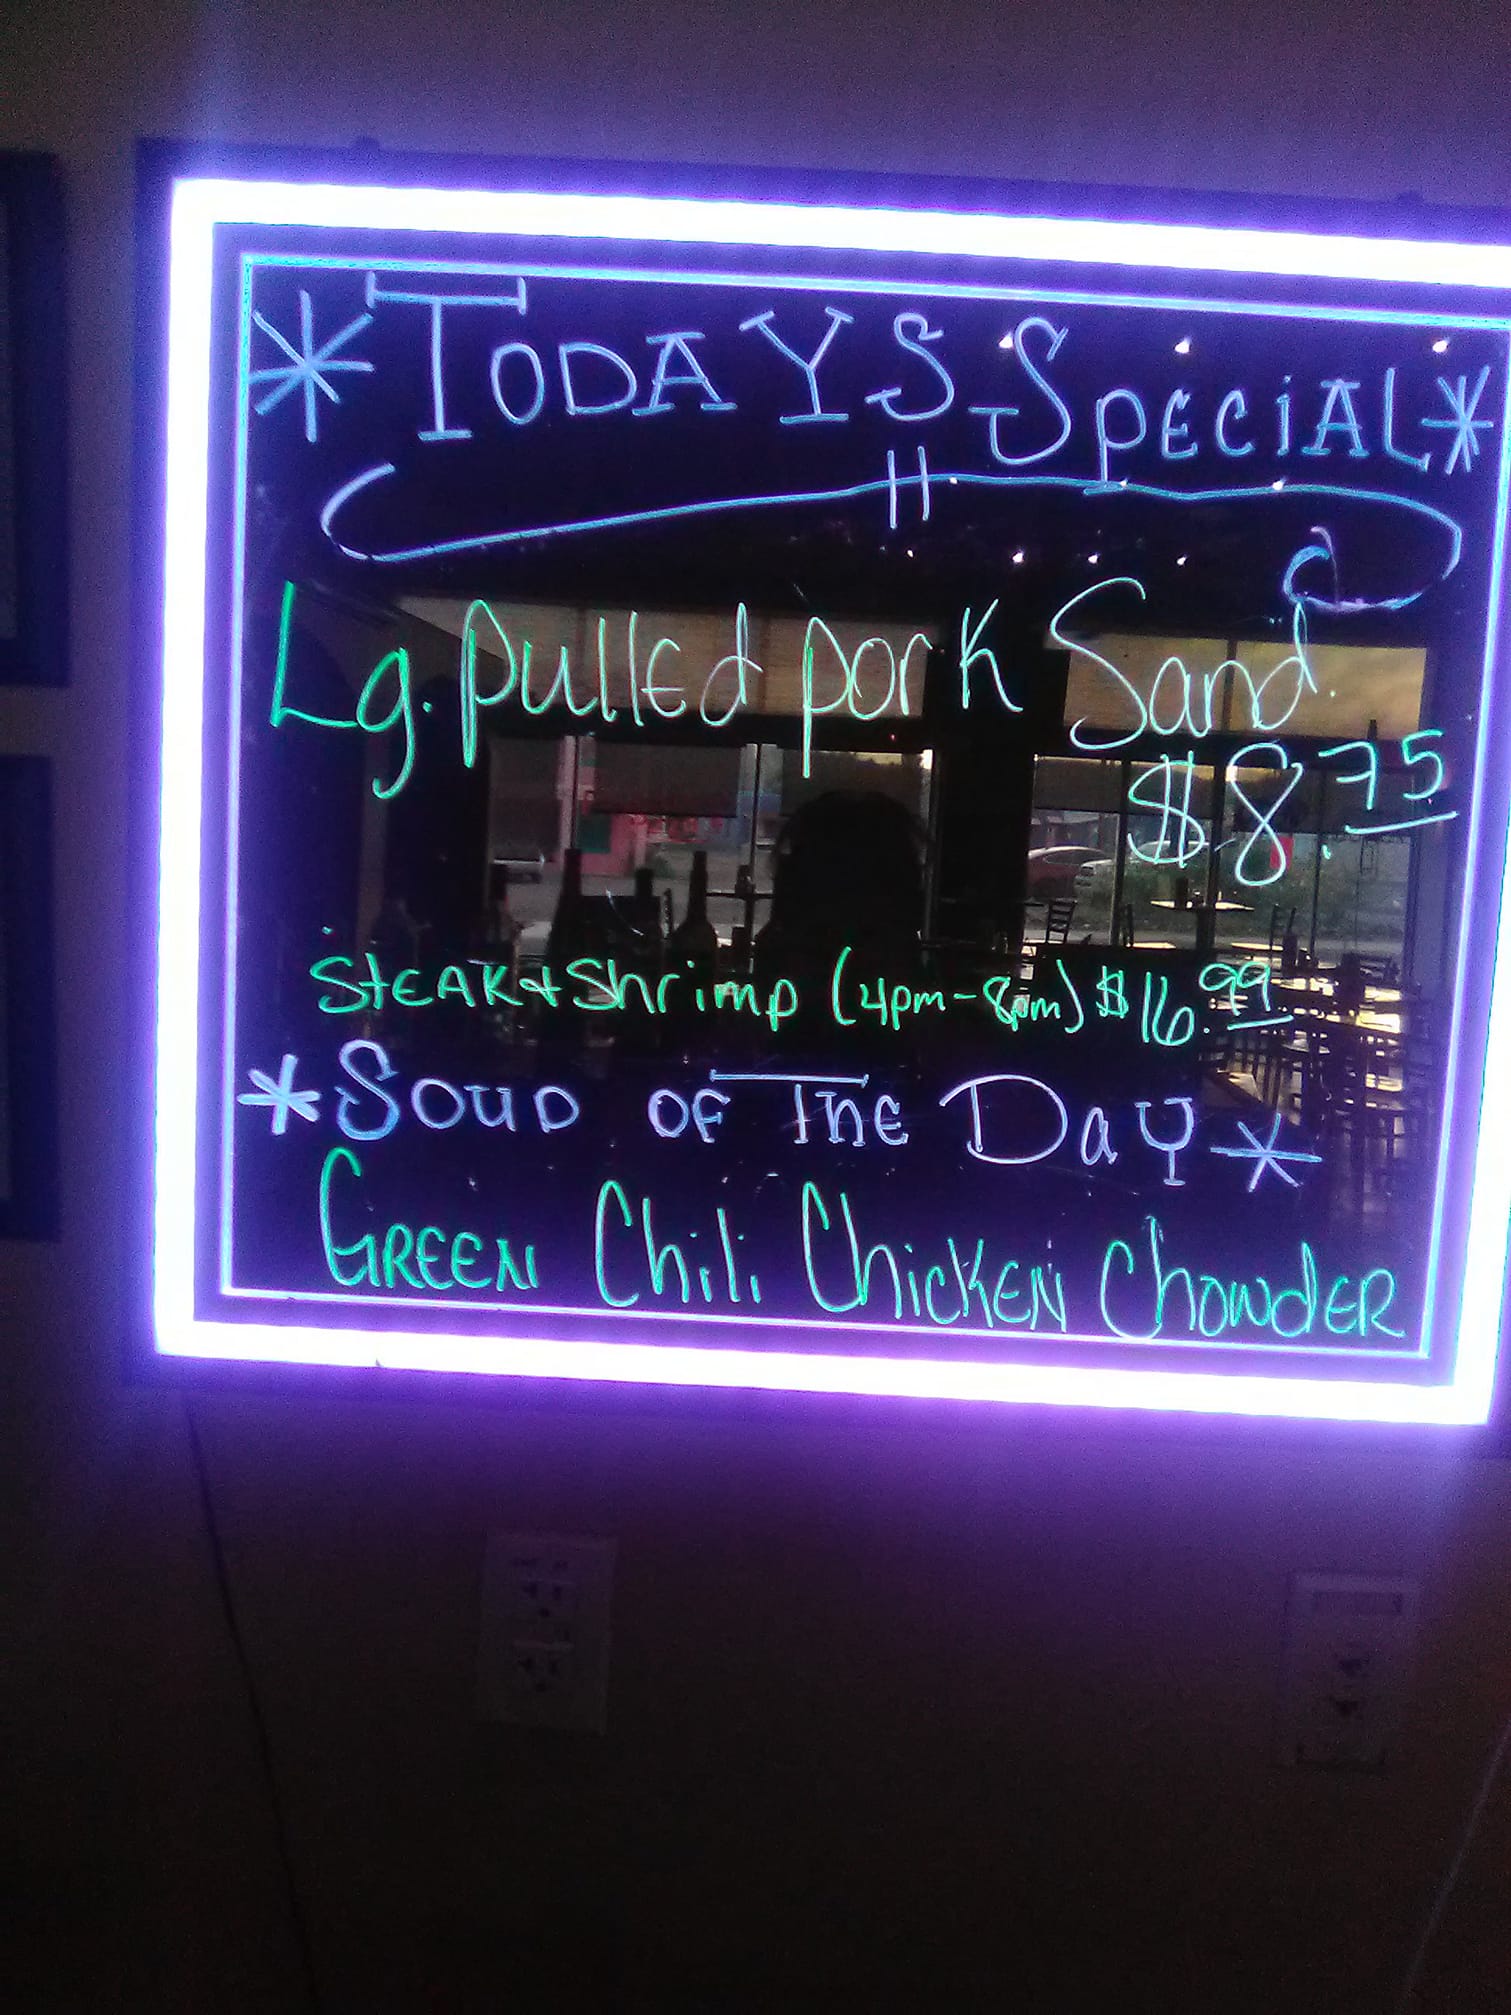 *TODAYS SPECIAL*
Lg. pulled pork Sand.
$8.75
STEAK + Shrimp (4pm-8pm) $16.99
*SOUP OF THE DAY*
GREEN Chili CHICKEN CHOWDER